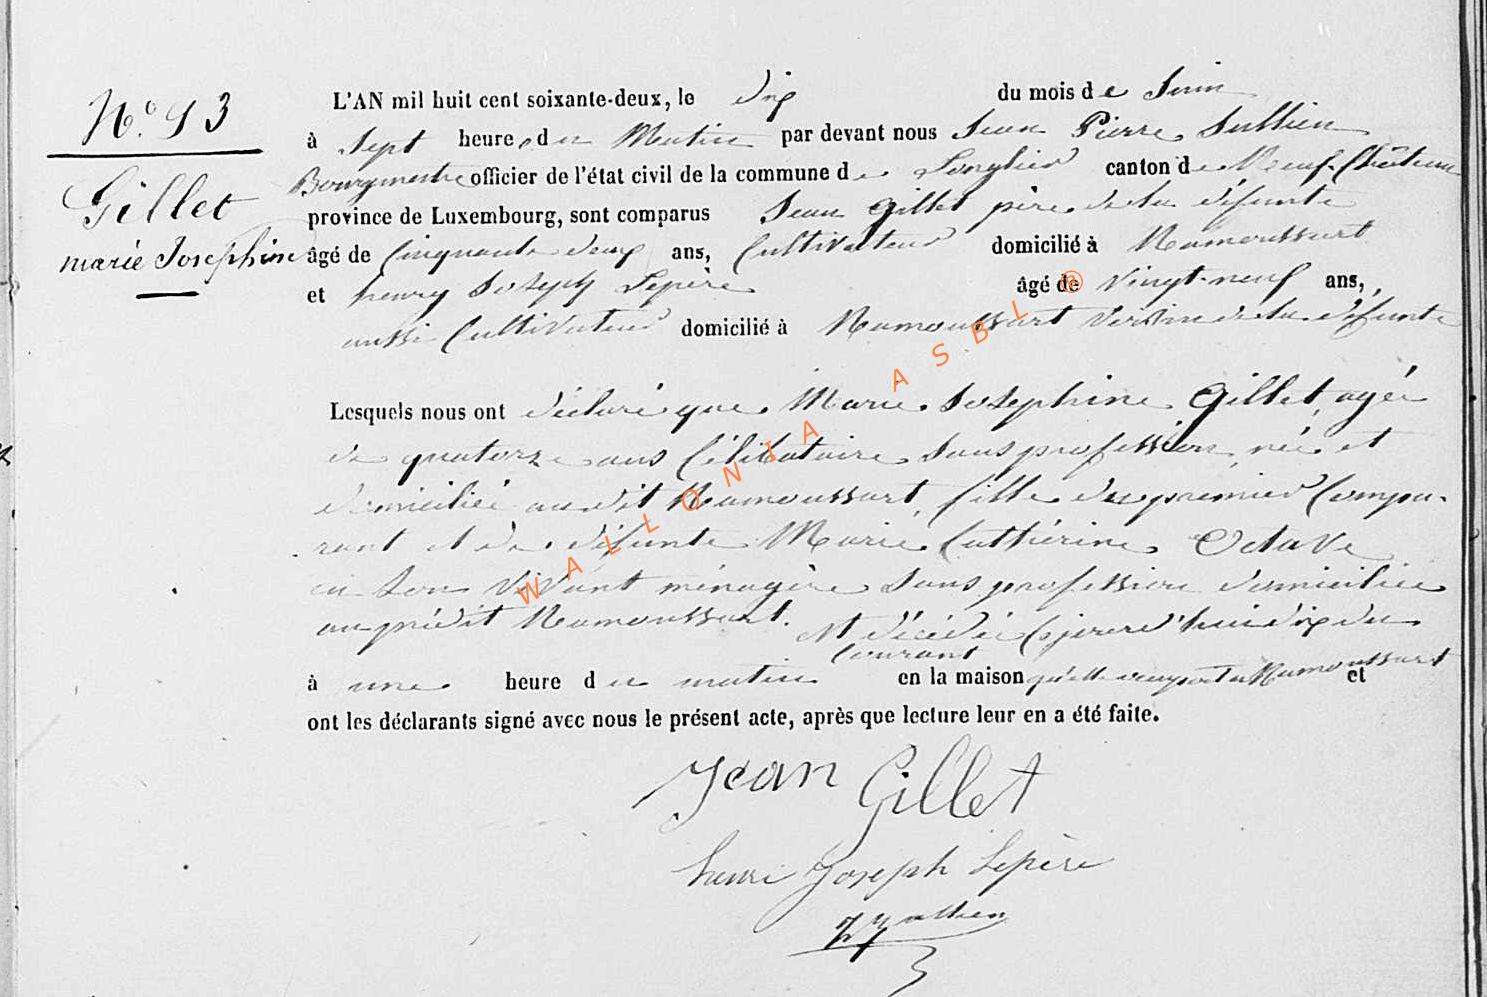 N.º 93
Gillet
marie Josephine
L'AN mil huit cent soixante-deux, le dix du mois de Juin
à Sept heure, du Matin par devant nous Jean Pierre
Bourgmestre officier de l'état civil de la commune de Longlier canton de Neufchâteau
province de Luxembourg, sont comparus Jean Gillet père de la défunte
âgé de Cinquante deux ans, Cultivateur domicilié à Namoussart
et henry Joseph Lepère âgé de Vingt-neuf ans,
aussi Cultivateur domicilié à Namoussart Voisin de la défunte
Lesquels nous ont déclaré que Marie Josephine Gillet, agée
de quatorze ans Célibataire Sans profession, née et
domiciliée au dit Namoussart, fille du premier Compa-
rant et de défunte Marie Cathérine Octave
en Son Vivant ménagère Sans profession domiciliée
au prédit Namoussart. Est décédée Cejourd'hui dix du
Courant
à une heure du matin en la maison qu'elle occupait à Namoussart et
ont les déclarants signé avec nous le présent acte, après que lecture leur en a été faite.
Jean Gillet
henri Joseph Lepère
WALLONIA ASBL ®